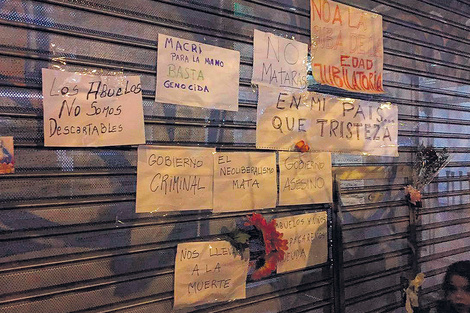 NO A LA
SUBA DE LA
EDAD
JUBILATORIA
MACRI
PARA LA MANO
BASTA
GENOCIDA
NO
MATARÁS
LOS ABUELOS
NO SOMOS
DESCARTABLES
EN MI PAÍS...
QUE TRISTEZA
GOBIERNO
CRIMINAL
EL
NEOLIBERALISMO
MATA
GOBIERNO
ASESINO
ABUELOS Y
NOS LLEVAN
A LA
MUERTE